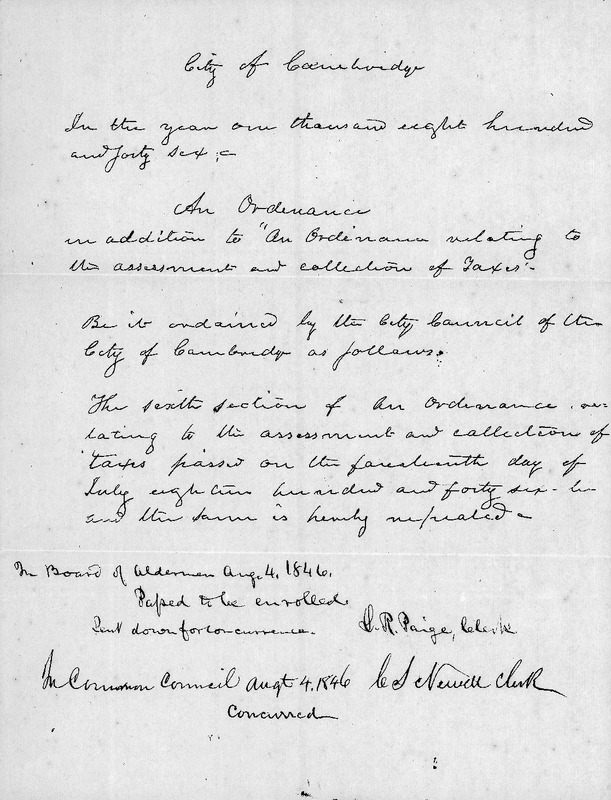 City of Cambridge
In the year one thousand eight hundred
and forty six;=
An Ordinance
in addition to "An Ordinance relating to
the assessment and collection of Taxes".
Be it ordained by the City Council of the
City of Cambridge as follows.
The sixth section of An Ordinance re-
lating to the assessment and collection of
taxes passed on the fourteenth day of
July eighteen hundred and forty six - be
and the same is hereby repealed =
In Board of Aldermen Aug. 4. 1846.
Passed to be enrolled.
Sent down for concurrence.
L. R. Paige, Clerk
In Common Council Augt 4. 1846 C S Newell Clerk
Concurred